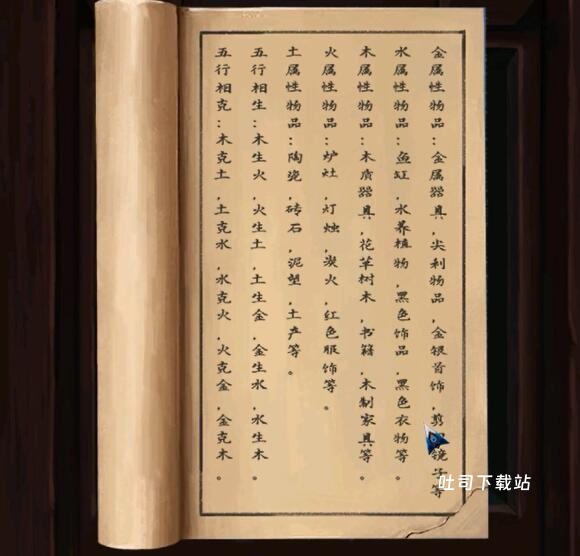 金属性物品：金属器具，尖利物品，金银首饰，剪镜子等
水属性物品：鱼缸，水养植物，黑色饰品，黑色衣物等。
木属性物品：木质器具，花草树木，书籍，木制家具等。
火属性物品：炉灶，灯烛，炭火，红色服饰等。
土属性物品：陶瓷，砖石，泥塑，土产等。
五行相生：木生火，火生土，土生金，金生水，水生木。
五行相克：木克土，土克水，水克火，火克金，金克木。
吐司下载站